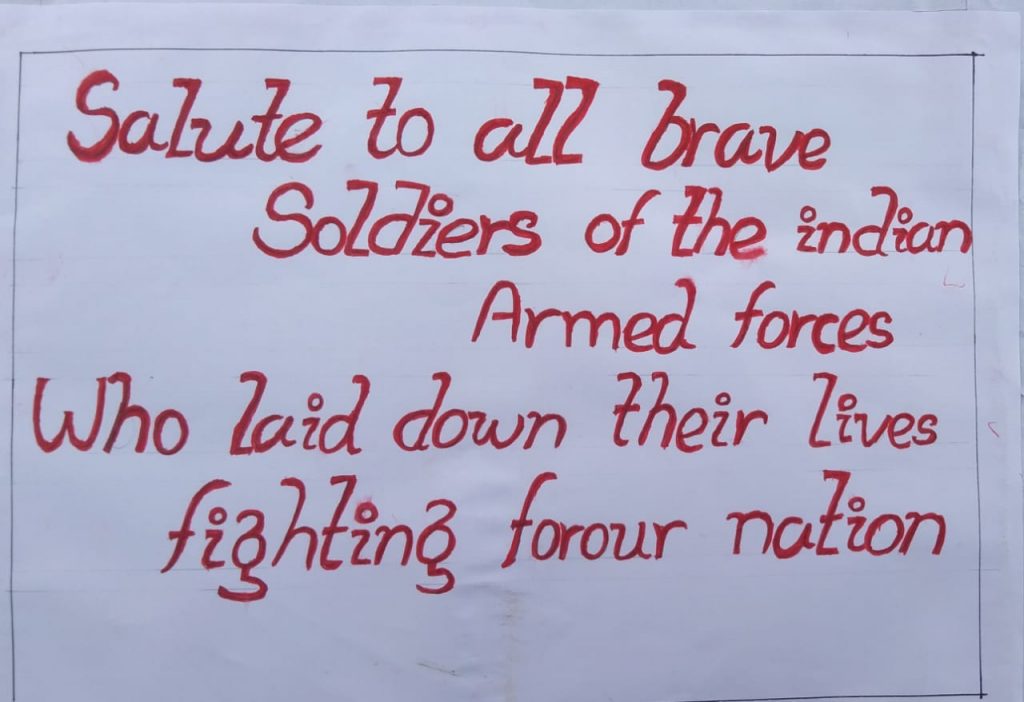 Salute to all brave
Soldiers of the indian
Armed forces
Who laid down their lives
fighting forour nation